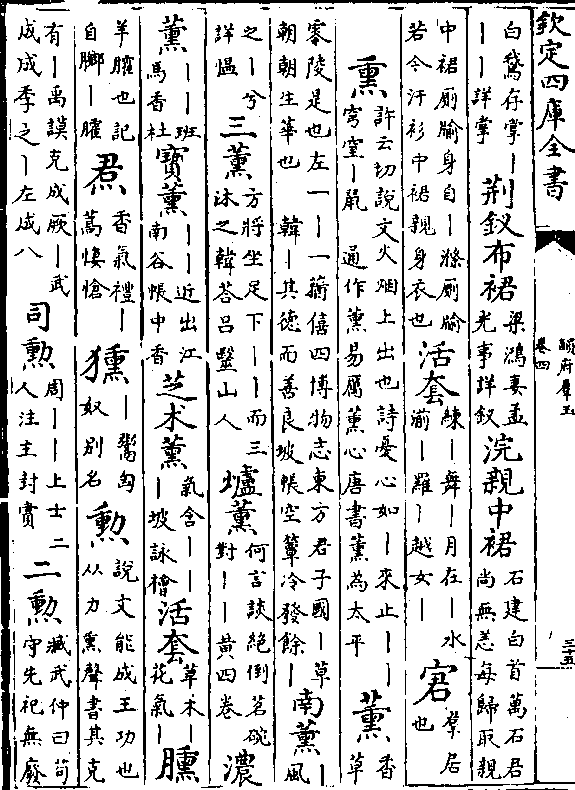 欽定四庫全書
韻府羣玉
卷四
三十五
白鵞存掌｜
｜｜詳掌
荆釵布裙
梁鴻妻孟
光事詳釵
浣親中裙
石建白首萬石君
尚無恙每歸取親
中裙厠牏身自｜滌厠牏
若今汗衫中裙親身衣也
活套
練｜舞｜月在｜水
湔｜羅｜越女｜
宭
羣居
也
熏
許云切說文火烟上出也詩憂心如｜來止｜｜
穹窒｜鼠 通作薰易厲薰心唐書薰為太平
薰
香
草
零陵是也左一｜｜一蕕僖四博物志東方君子國｜草
朝朝生華也 韓｜其德而善良坡帳空簟冷發餘｜
南薰
｜
風
之｜兮
詳愠
三薰
方將坐足下｜｜而三
沐之韓荅呂毉山人
爐薰
何言談絶倒茗碗
對｜｜黄四卷
濃
薰
｜｜班
馬香杜
寳薰
｜｜近出江
南谷帳中香
芝术薰
氣含｜｜
｜坡詠檜
活套
草木｜
花氣｜
臐
羊臛也記
自膷｜臛
焄
香氣禮｜
蒿悽愴
獯
｜鬻匈
奴别名
勲
說文能成王功也
从力熏聲書其克
有｜禹謨克成厥｜武
成成季之｜左成八
司勲
周｜｜上士二
人注主封賞
二勲
臧武仲曰茍
守先祀無廢